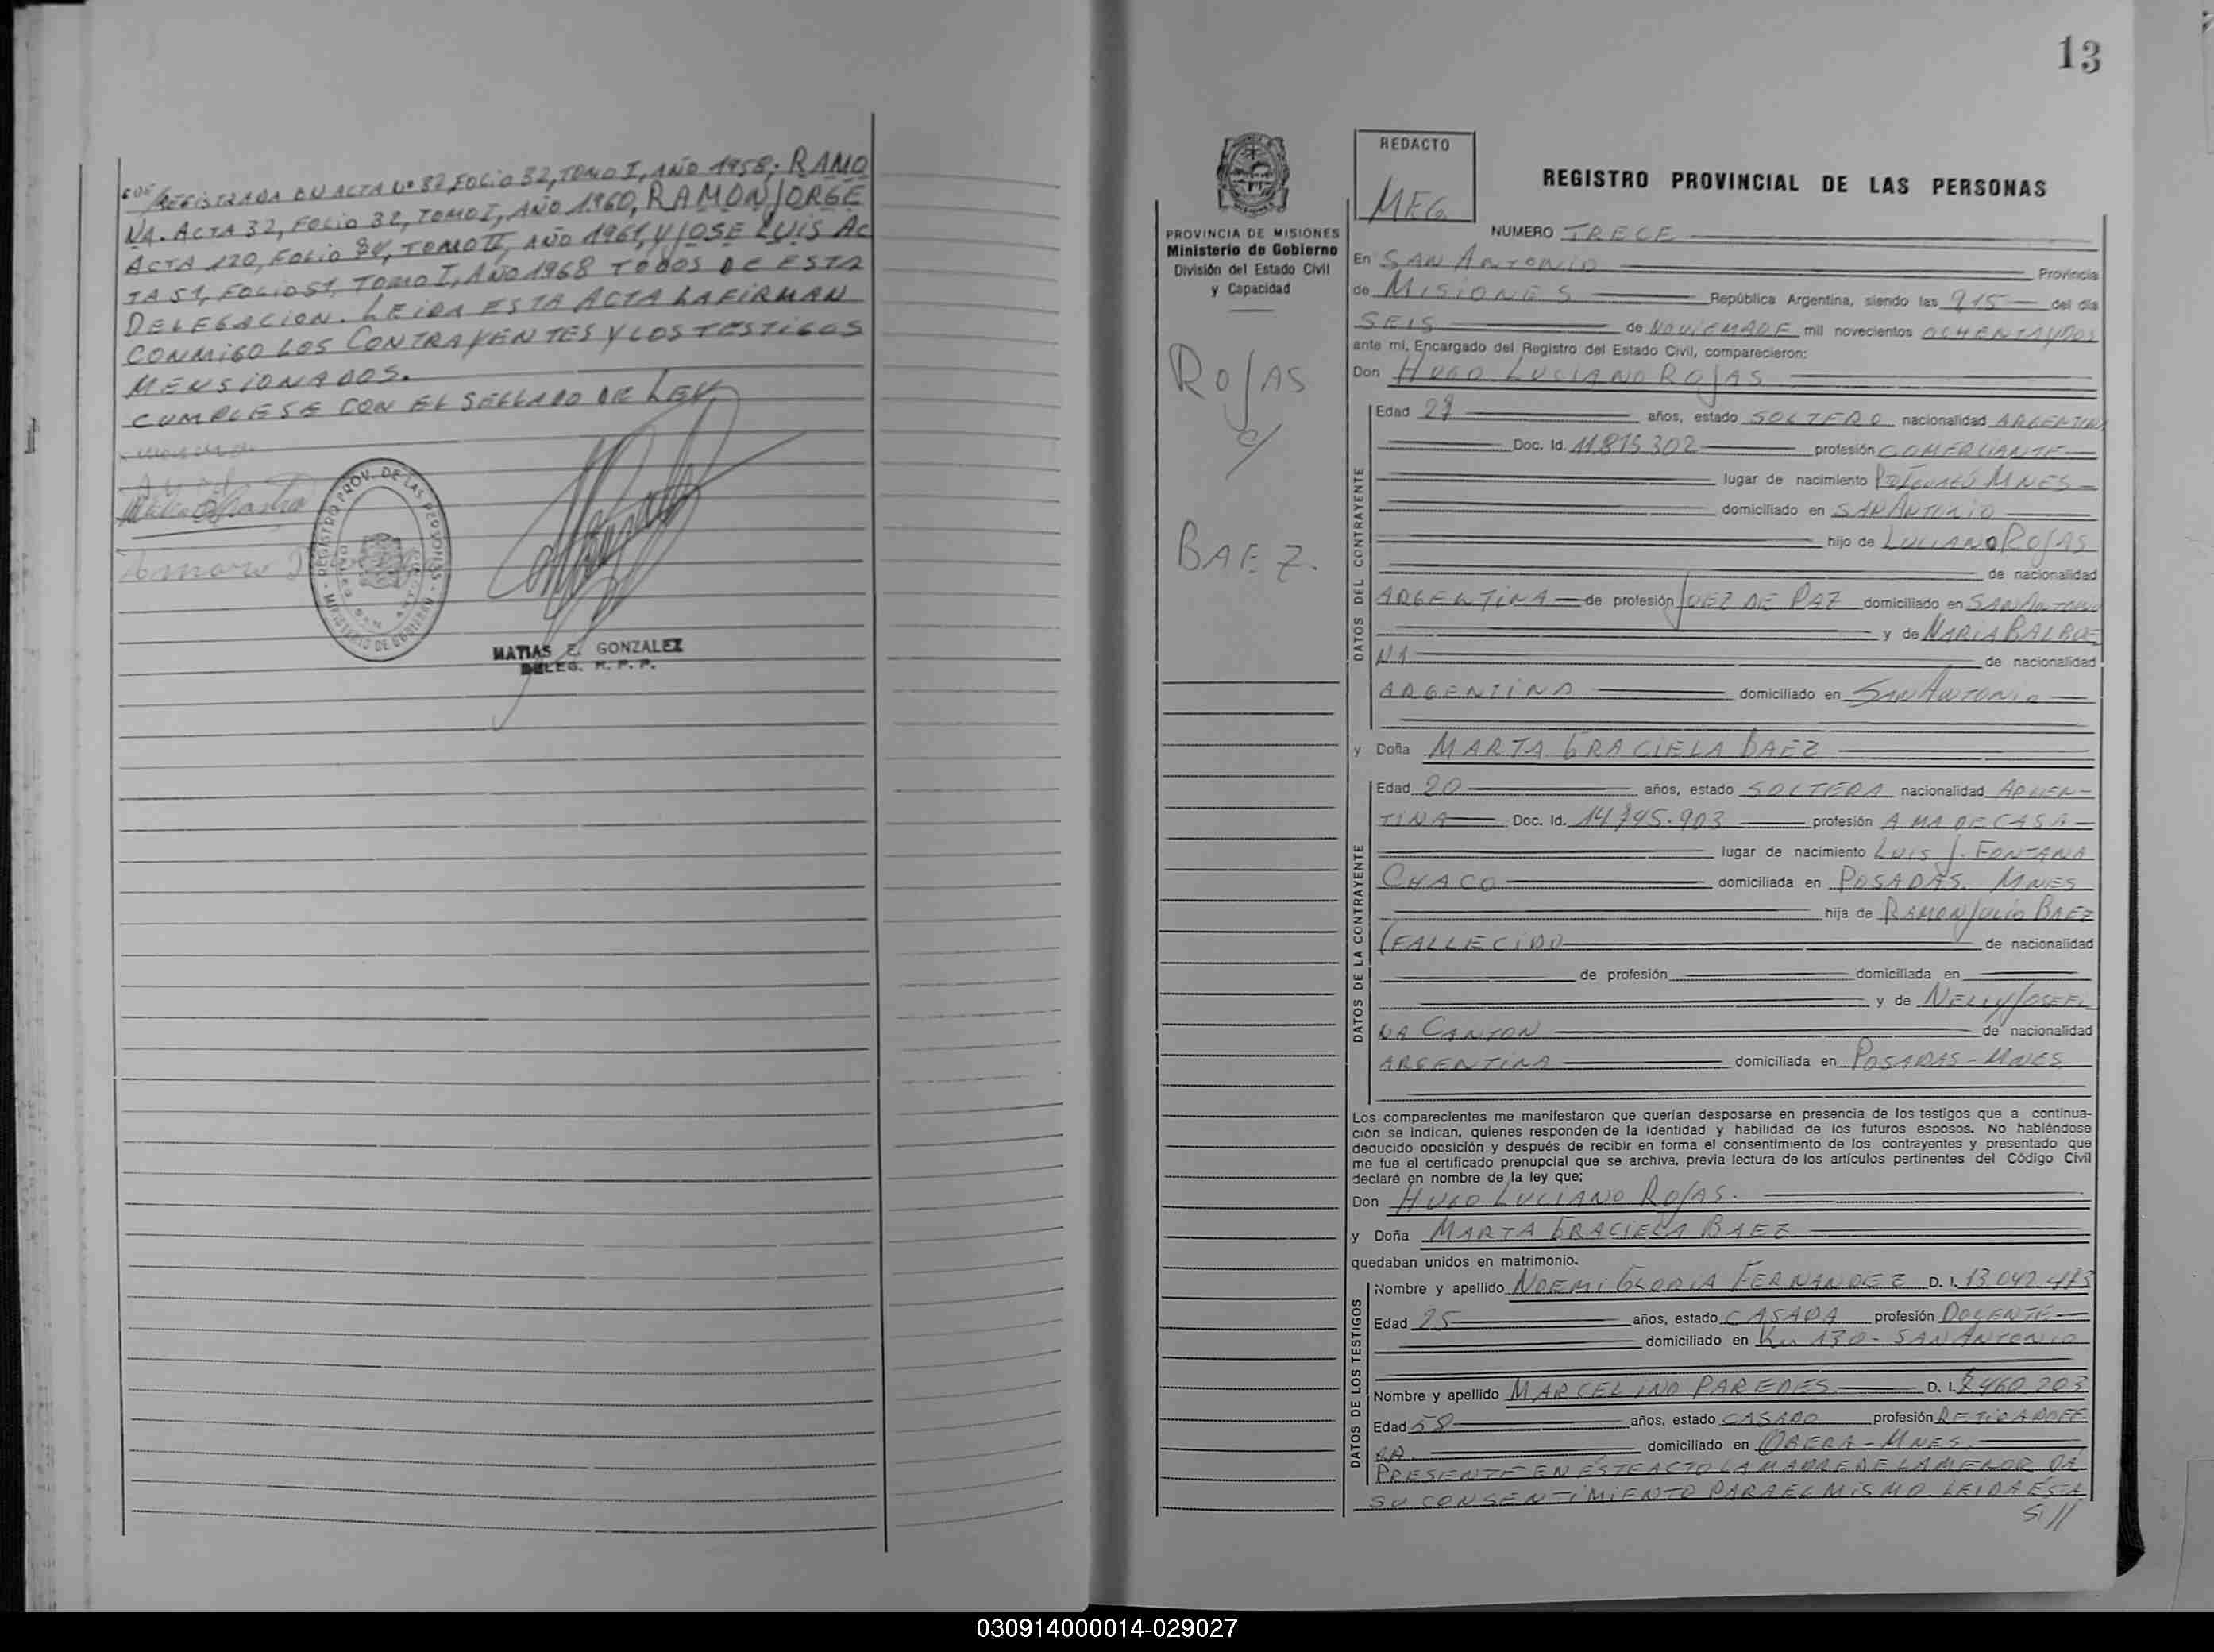 REGISTRADA EN ACTA Nº 32, FOLIO 32, TOMO I, AÑO 1958; RAMO
NA. ACTA 32, FOLIO 32, TOMO I, AÑO 1.960, RAMON JORGE
ACTA 120, FOLIO TOMO II, AÑO 1961, Y JOSE LUIS AC
TA 51, FOLIO 51, TOMO I, AÑO 1968 TODOS DE ESTA
DELEGACION. LEIDA ESTA ACTA LA FIRMAN
CONMIGO LOS CONTRAYENTES Y LOS TESTIGOS
MENSIONADOS.
CUMPLESE CON EL SELLADO DE LEY
REGISTRO PROV. DE LAS PERSONAS
MINISTERIO DE GOBIERNO
MATIAS E. GONZALEZ
DELEG. R. P. P.
13
PROVINCIA DE MISIONES
Ministerio de Gobierno
División del Estado Civil
y Capacidad
ROJAS
c/
BAEZ.
REDACTO
MEG
REGISTRO PROVINCIAL DE LAS PERSONAS
NUMERO TRECE
En SAN ANTONIO Provincia
de MISIONES República Argentina, siendo las 915 del día
SEIS de NOVIEMBRE mil novecientos OCHENTA Y DOS
ante mí, Encargado del Registro del Estado Civil, comparecieron:
Don HUGO LUCIANO ROJAS
DATOS DEL CONTRAYENTE
Edad años, estado SOLTERO nacionalidad ARGENTINA
Doc. Id. 11.815.302 profesión COMERCIANTE
lugar de nacimiento MNES
domiciliado en SAN ANTONIO
hijo de LUCIANO ROJAS
de nacionalidad
ARGENTINA de profesión JUEZ DE PAZ domiciliado en SAN ANTONIO
y de MARIA BALBUE
NA de nacionalidad
ARGENTINA domiciliado en SAN ANTONIO
y Doña MARTA GRACIELA BAEZ
DATOS DE LA CONTRAYENTE
Edad 20 años, estado SOLTERA nacionalidad ARGEN-
TINA Doc. Id. 14.745.903 profesión AMA DE CASA
lugar de nacimiento LUIS J. FONTANA
CHACO domiciliada en POSADAS. MNES
hija de RAMON JULIO BAEZ
(FALLECIDO de nacionalidad
de profesión domiciliada en
y de NELLY JOSEFI
NA CANTON de nacionalidad
ARGENTINA domiciliada en POSADAS - MNES
Los comparecientes me manifestaron que querían desposarse en presencia de los testigos que a continua-
ción se indican, quienes responden de la identidad y habilidad de los futuros esposos. No habiéndose
deducido oposición y después de recibir en forma el consentimiento de los contrayentes y presentado que
me fue el certificado prenupcial que se archiva, previa lectura de los artículos pertinentes del Código Civil
declaré en nombre de la ley que:
Don HUGO LUCIANO ROJAS.
y Doña MARTA GRACIELA BAEZ
quedaban unidos en matrimonio.
DATOS DE LOS TESTIGOS
Nombre y apellido NOEMI GLORIA FERNANDEZ D. I. 13.042.413
Edad 25 años, estado CASADA profesión DOCENTE
domiciliado en Km 130 - SAN ANTONIO
Nombre y apellido MARCELINO PAREDES D. I. 7.460.203
Edad 58 años, estado CASADO profesión RETIRADO FF.
AA. domiciliado en OBERA - MNES.
PRESENTE EN ESTE ACTO LA MADRE DE LA MENOR DA
SU CONSENTIMIENTO PARA EL MISMO LEIDA ESTA
030914000014-029027